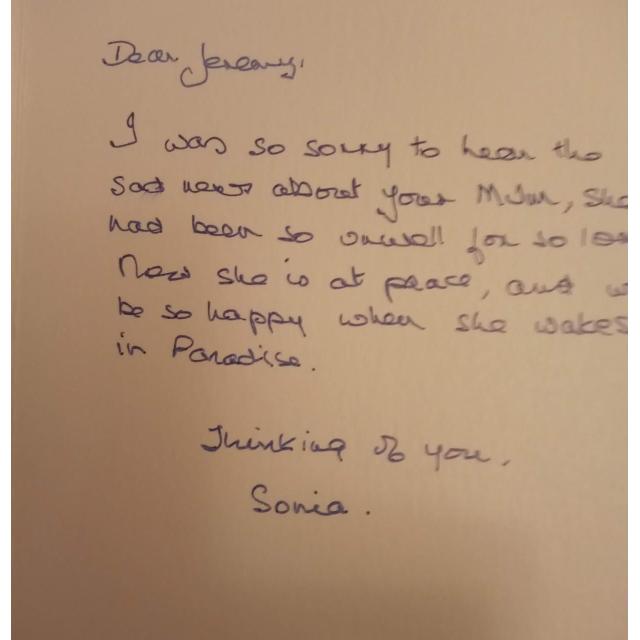 Dear Jeremy,
I was so sorry to hear the
sad news about your Mum, she
had been so unwell for so
Now she is at peace, and
be so happy when she wakes
in Paradise.
Thinking of you,
Sonia.